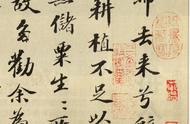 去来兮
耕植不足以
無儲粟生生
故多勸余為